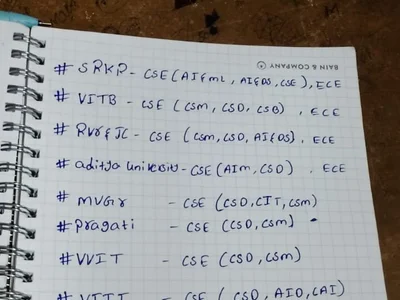 BAIN & COMPANY
# SRKR - CSE (AI&ML, AI&DS, CSE), ECE
# VITB - CSE (CSM, CSD, CSB), ECE
# RVR&JC - CSE (CSM, CSD, AI&DS), ECE
# aditya university - CSE (AIM, CSD), ECE
# MVGR - CSE (CSD, CIT, CSM)
# Pragati - CSE (CSD, CSM)
# VVIT - CSE (CSD, CSM)
# VIIT - CSE (CSD, AID, CAI)